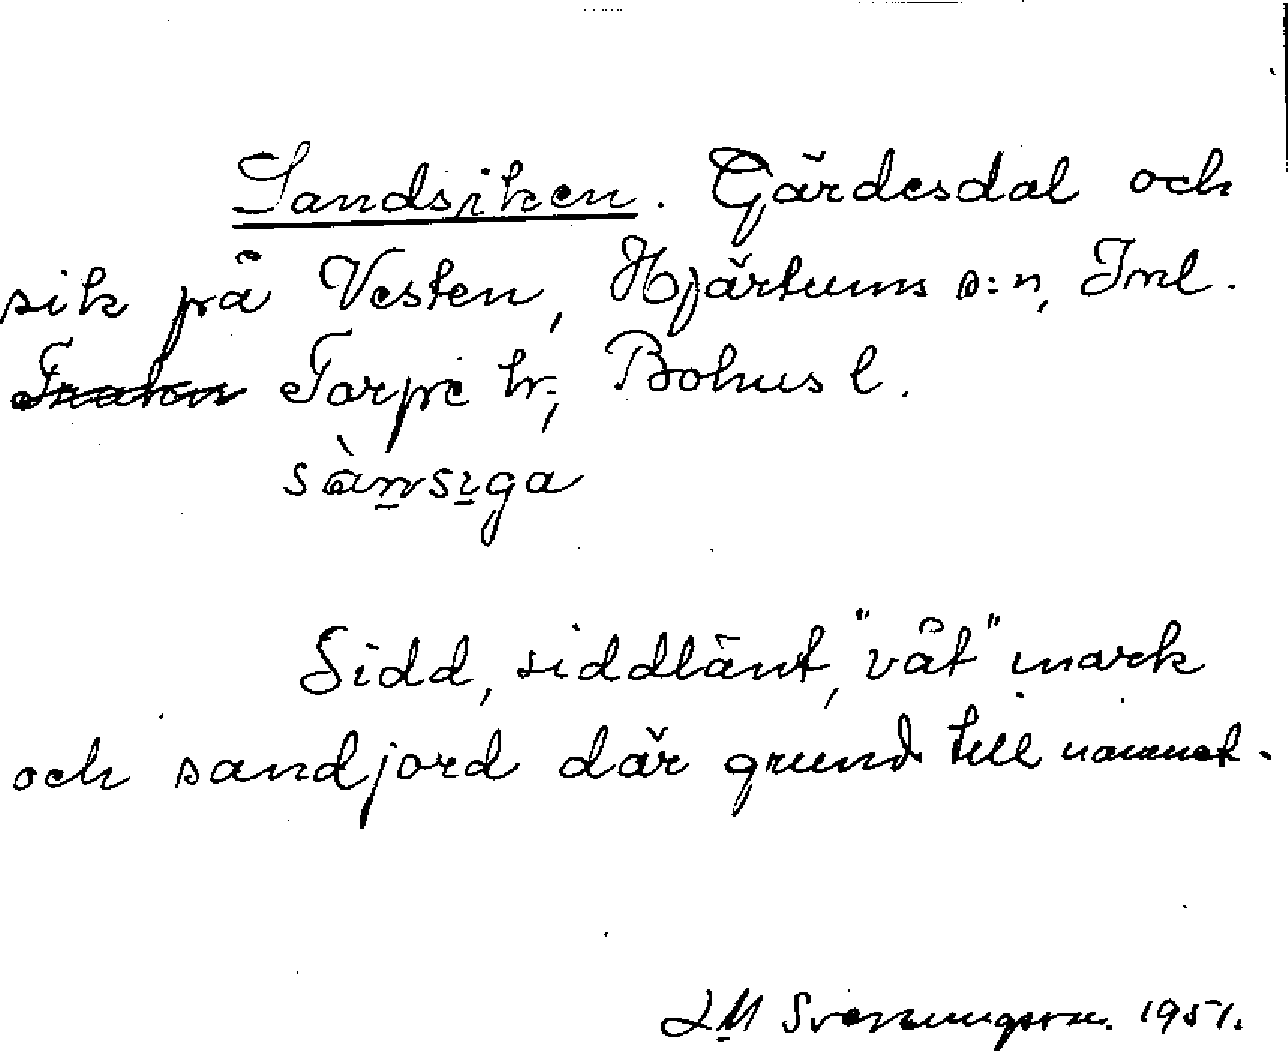 Sandsiken. Gärdesdal och
sik på Vesten, Hjärtums s:n, Inl.
Torpe hr., Bohus l.
sànsiga
Sidd, siddlänt, "våt" mark
och sandjord där grund till namnet.
LM Svenungsson. 1951.